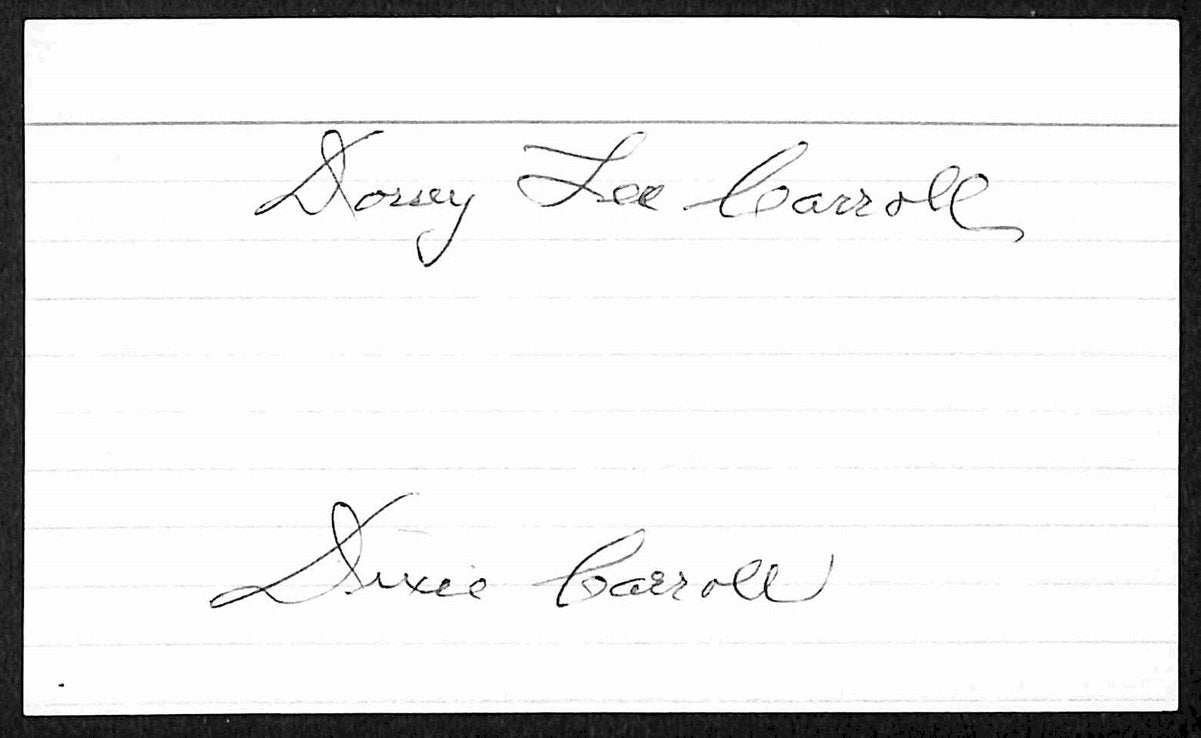 Dorsey Lee Carroll
Dixie Carroll